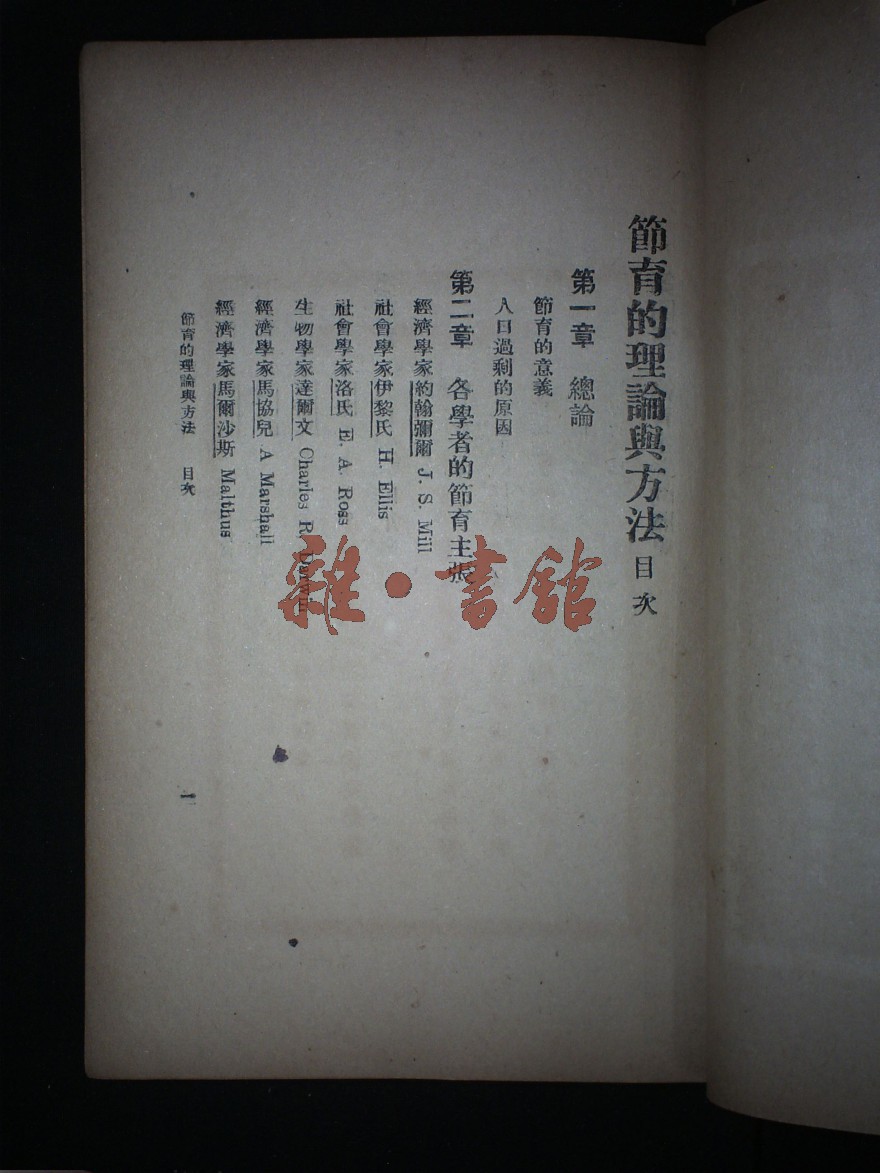 節育的理論與方法 目次
第一章 總論
節育的意義
人口過剩的原因
第二章 各學者的節育主張
經濟學家約翰彌爾 J. S. Mill
社會學家伊黎氏 H. Ellis
社會學家洛氏 E. A. Ross
生物學家達爾文 Charles R. Darwin
經濟學家馬協兒 A Marshall
經濟學家馬爾沙斯 Malthus
節育的理論與方法 目次 一
雜·書館